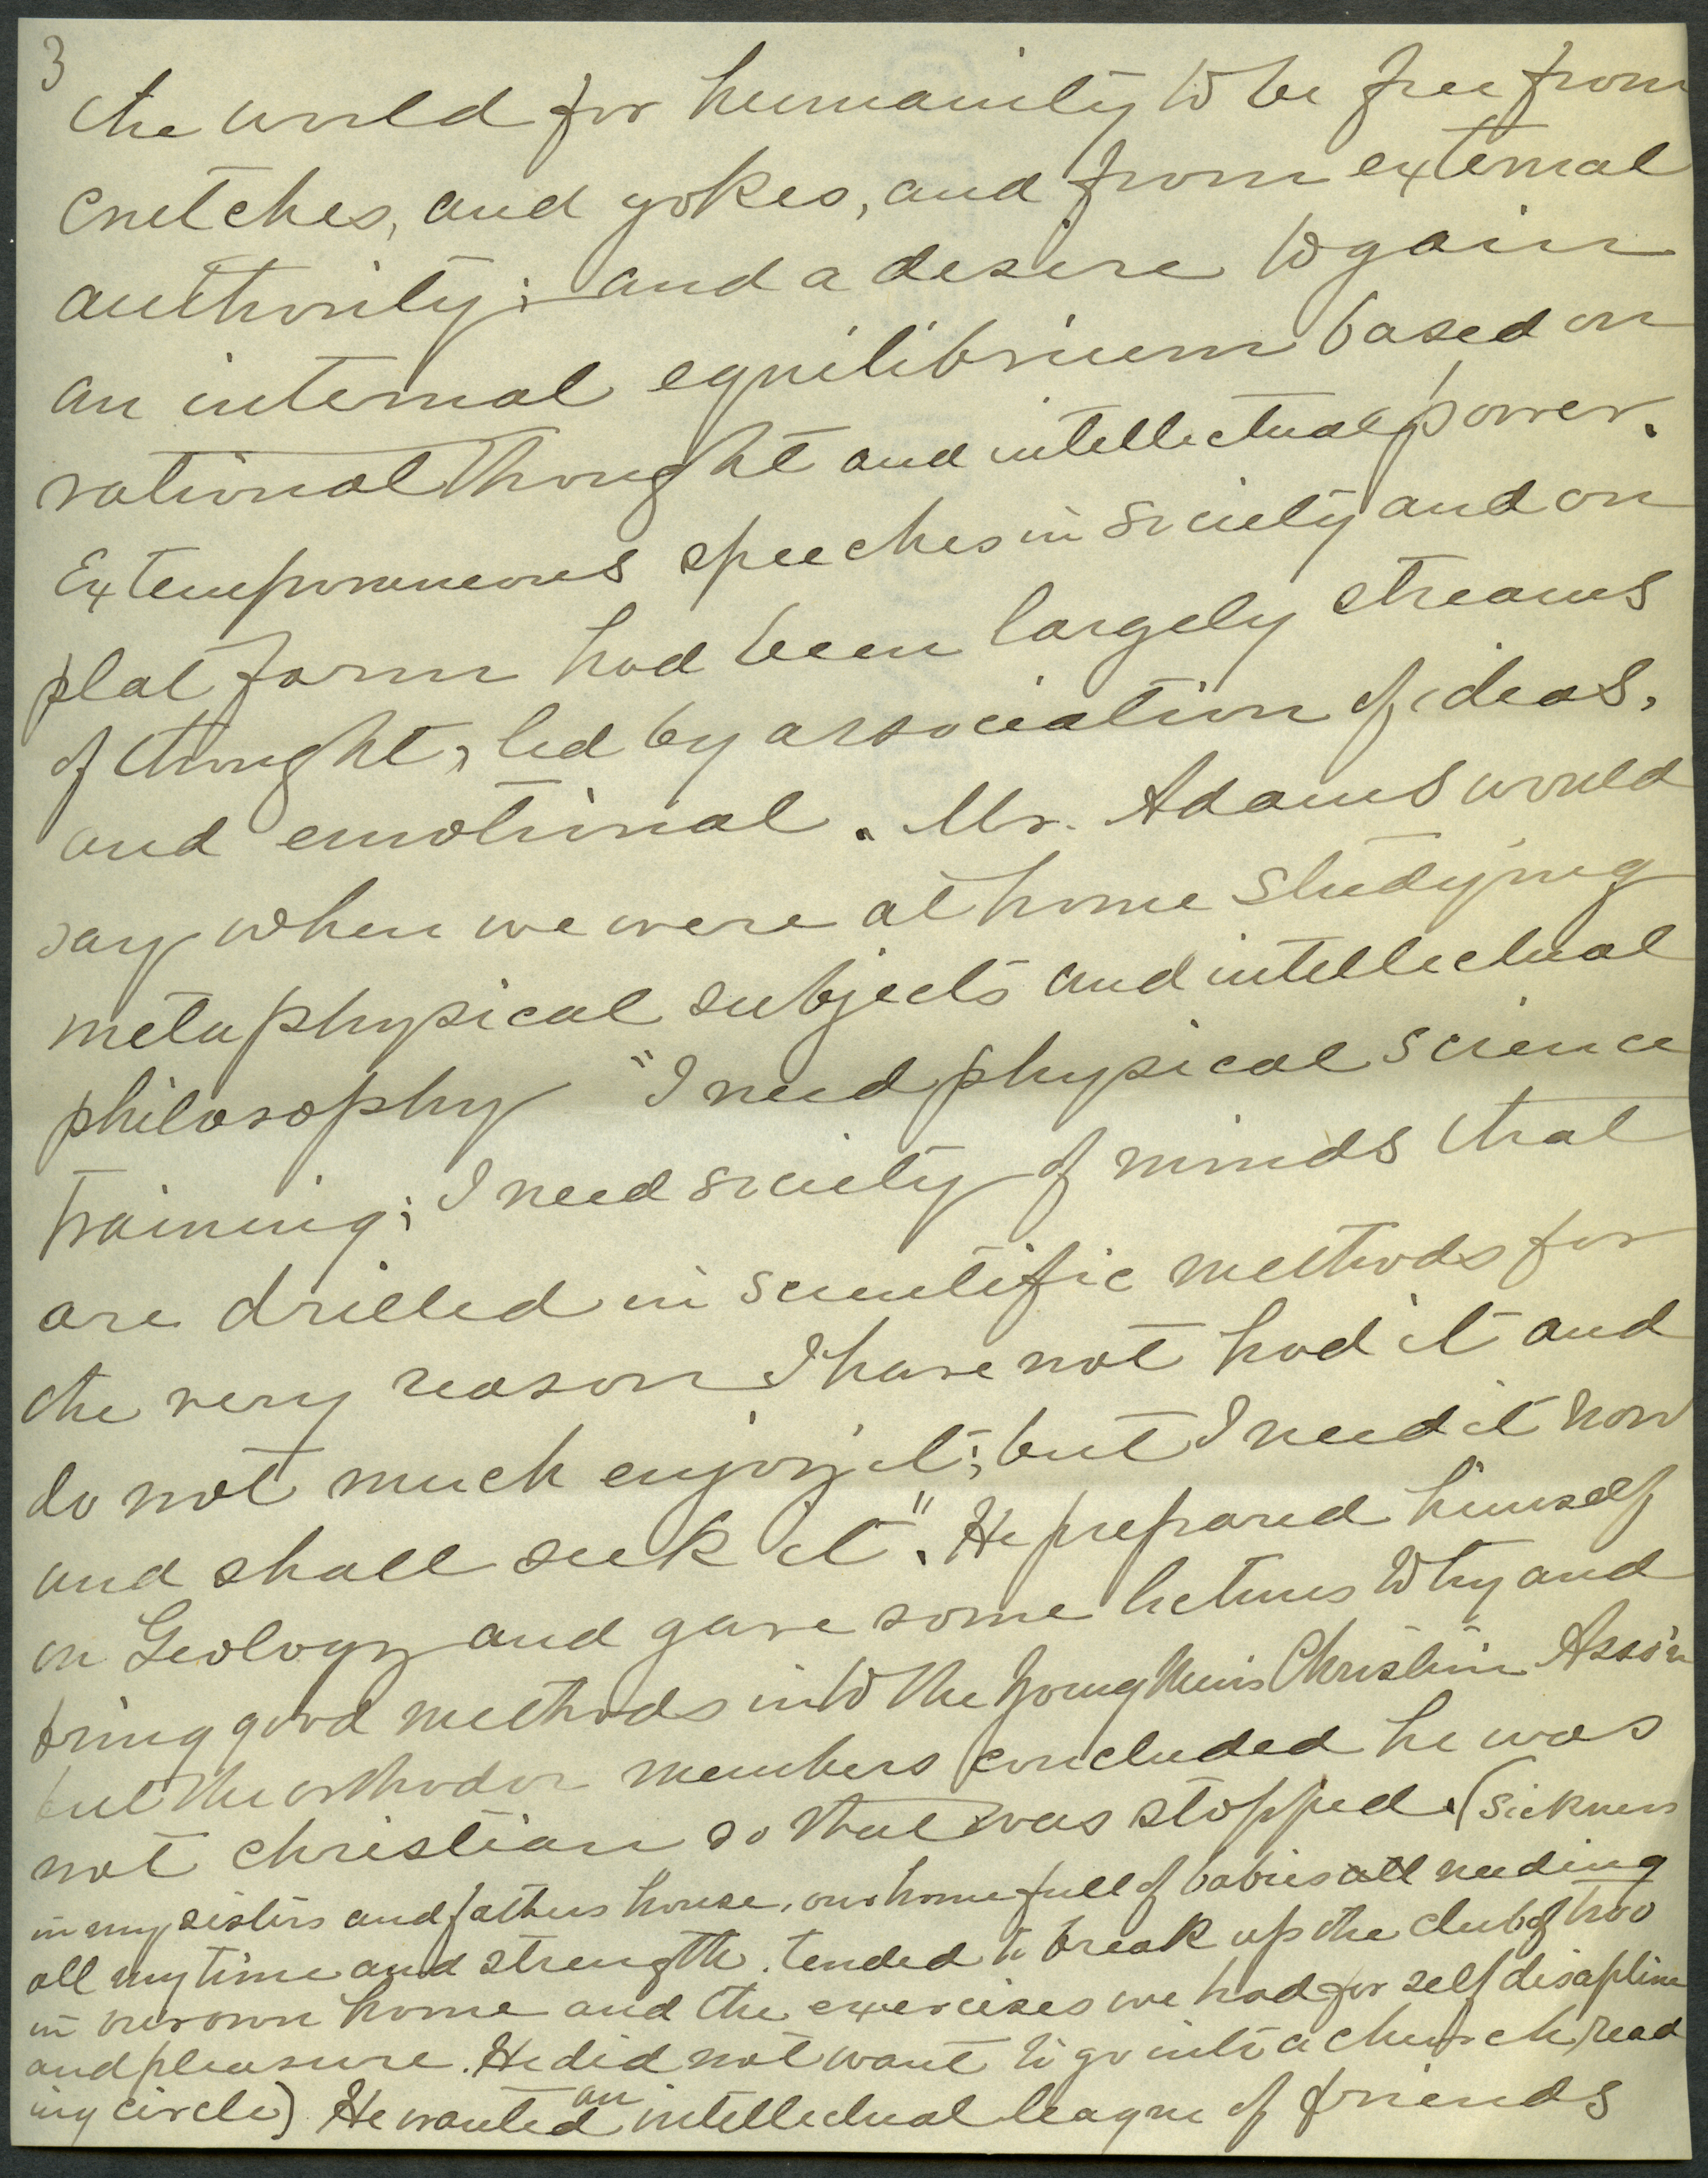 3
the world for humanity to be free from
crutches, and yokes, and from external
authority; and a desire to gain
an internal equilibrium based on
rational thought and intellectual power.
Extemporaneous speeches in society and on
platform had been largely streams
of thought, led by association of ideas,
and emotional. Mr. Adams would
say when we were at home studying
metaphysical subjects and intellectual
philosophy "I need physical science
training; I need society of minds that
are drilled in scientific methods for
the very reason I have not had it and
do not much enjoy it; but I need it now
and shall seek it". He prepared himself
on Geology and gave some lectures to try and
bring good methods into the Young Mens Christian Ass'n
but the orthodox members concluded he was
not christian so that was stopped. (Sickness
in my sisters and fathers house, our home full of babies all needing
all my time and strength, tended to break up the club of two
in our own home and the exercises we had for self disapline
and pleasure. He did not want to go into a church read
ing circle) He wanted an intellectual league of friends